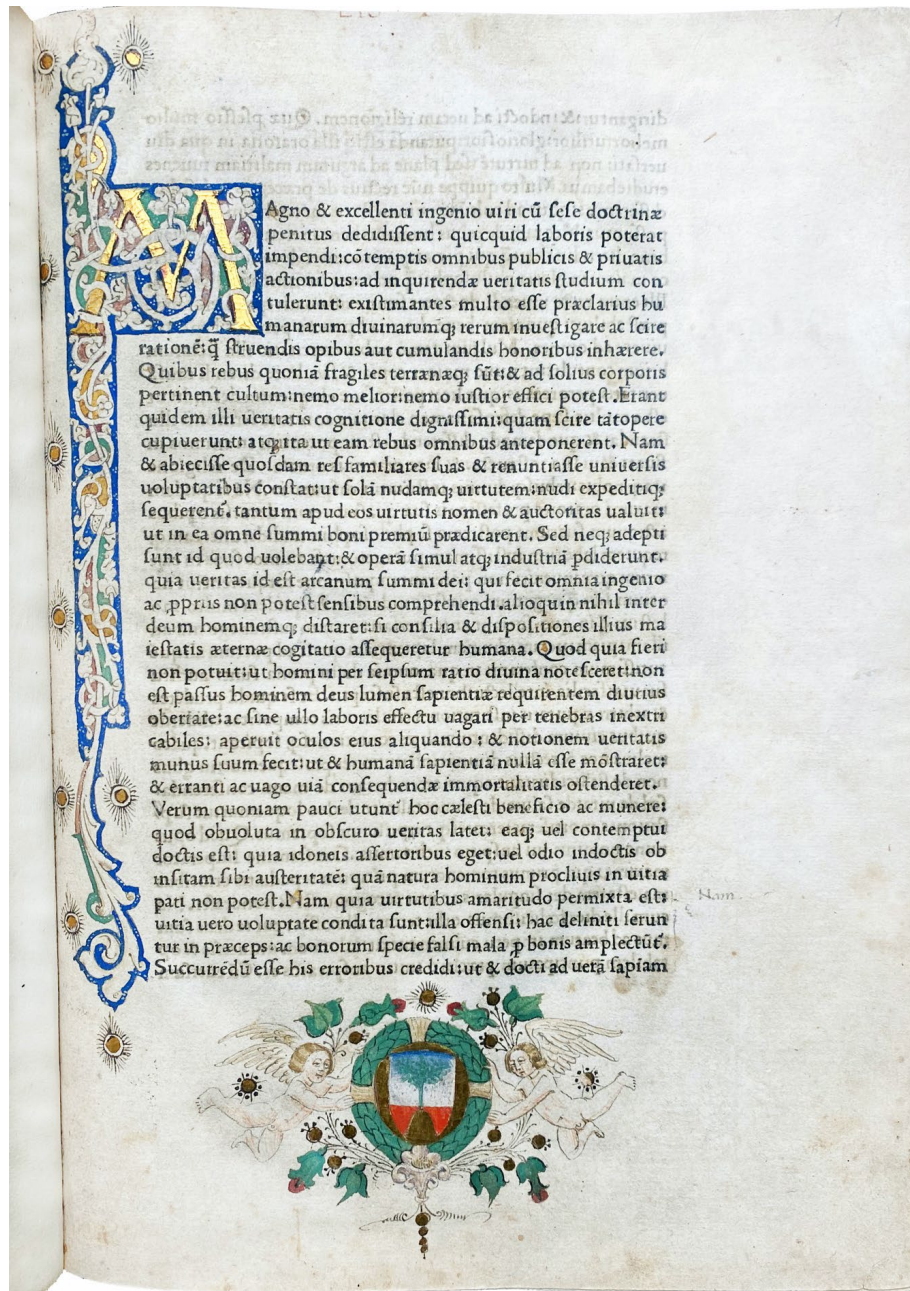 MAgno & excellenti ingenio uiri cū sese doctrinæ
penitus dedidissent: quicquid laboris poterat
impendi:cōtemptis omnibus publicis & priuatis
actionibus:ad inquirendæ ueritatis studium con
tulerunt: existimantes multo esse præclarius hu
manarum diuinarumq; rerum inuestigare ac scire
rationē:q̄ struendis opibus aut cumulandis honoribus inhærere.
Quibus rebus quoniā fragiles terrænæq; sūt:& ad solius corporis
pertinent cultum:nemo melior:nemo iustior effici potest.Erant
quidem illi ueritatis cognitione dignissimi:quam scire tātopere
cupiuerunt: atq;ita ut eam rebus omnibus anteponerent. Nam
& abiecisse quosdam res familiares suas & renuntiasse uniuersis
uoluptatibus constat:ut solā nudamq; uirtutem:nudi expeditiq;
sequerent᷑. tantum apud eos uirtutis nomen & auctoritas ualuit:
ut in ea omne summi boni premiū prædicarent. Sed neq; adepti
sunt id quod uolebant:& operā simul atq; industriā ꝑdiderunt.
quia ueritas id est arcanum summi dei: qui fecit omnia ingenio
ac ꝓpriis non potest sensibus comprehendi.alioquin nihil inter
deum hominemq; distaret:si consilia & dispositiones illius ma
iestatis æternæ cogitatio assequeretur humana. Quod quia fieri
non potuit:ut homini per seipsum ratio diuina notesceret:non
est passus hominem deus lumen sapientiæ requirentem diutius
oberrare:ac sine ullo laboris effectu uagari per tenebras inextri
cabiles: aperuit oculos eius aliquando : & notionem ueritatis
munus suum fecit:ut & humanā sapientiā nullā esse mōstraret:
& erranti ac uago uiā consequendæ immortalitatis ostenderet.
Verum quoniam pauci utunt᷑ hoc cælesti beneficio ac munere:
quod obuoluta in obscuro ueritas latet: eaq; uel contemptui
doctis est: quia idoneis assertoribus eget:uel odio indoctis ob
insitam sibi austeritatē: quā natura hominum procliuis in uitia
pati non potest.Nam quia uirtutibus amaritudo permixta est:
Nam
uitia uero uoluptate condita sunt:illa offensi: hac deliniti ferun
tur in præceps:ac bonorum specie falsi mala ꝓ bonis amplectūt᷑.
Succurrēdū esse his erroribus credidi:ut & docti ad uerā sapiam